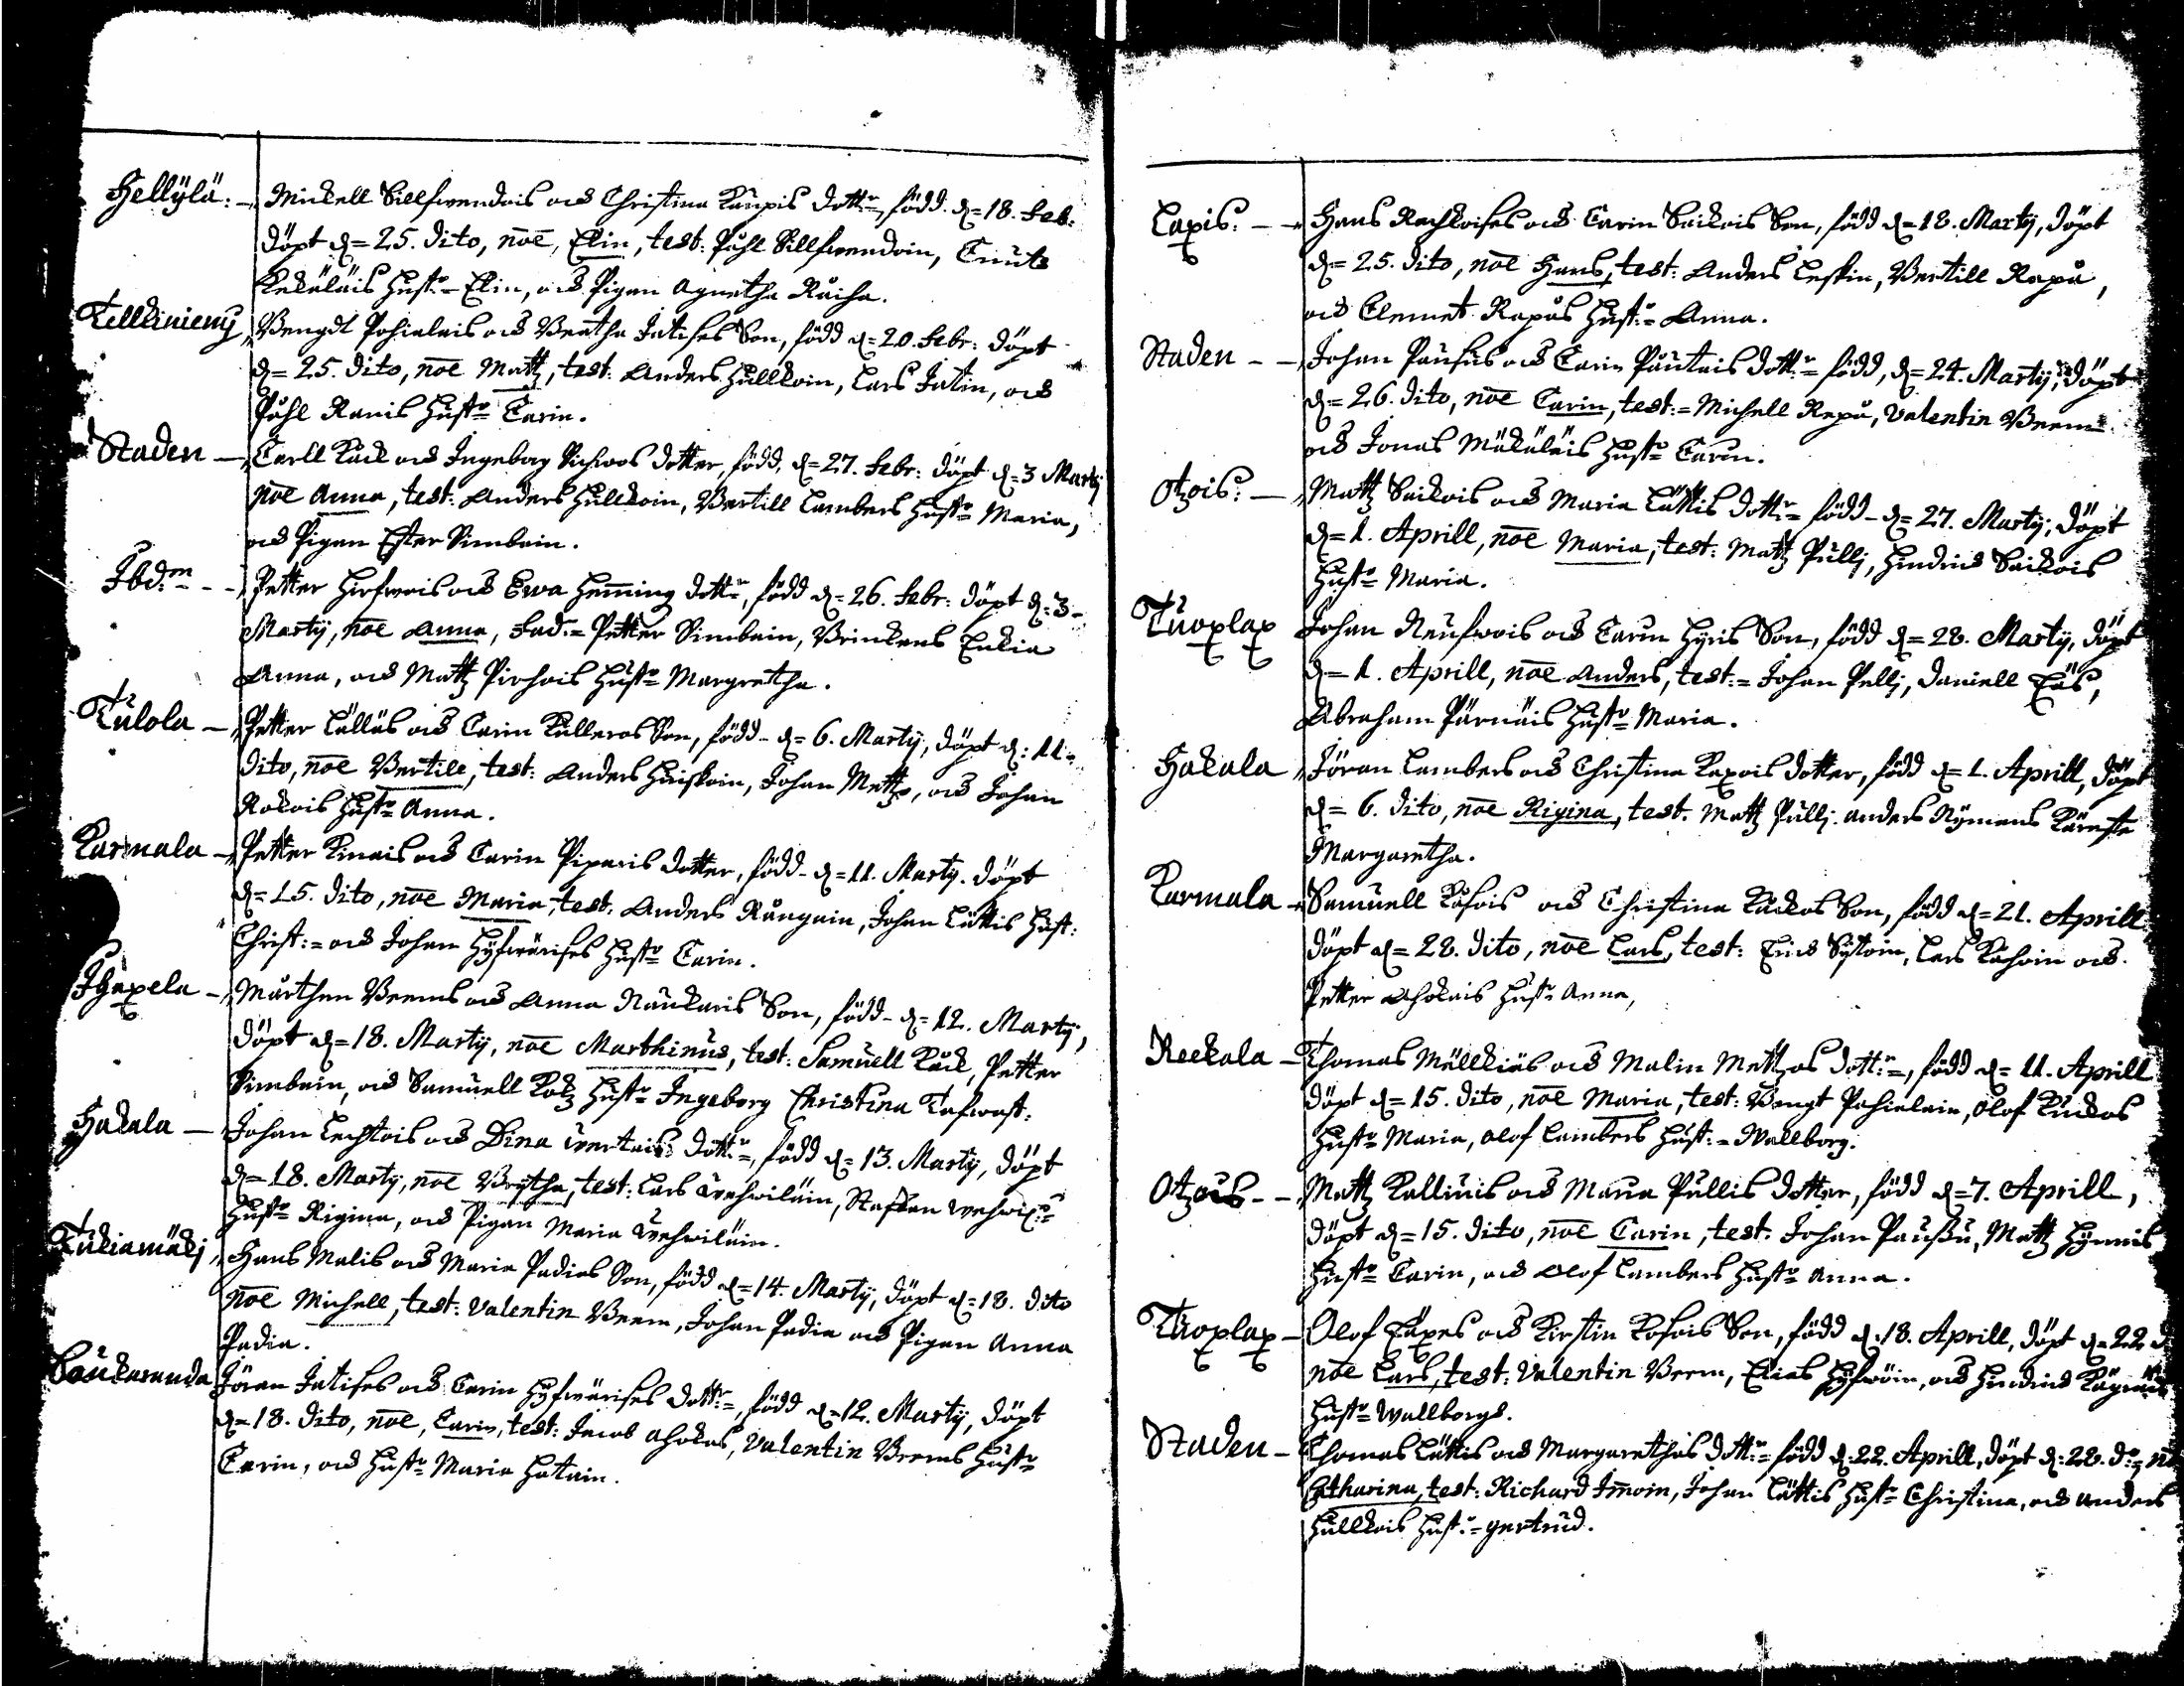 Hellÿlä: Mickell Sillfwendois och Christina Kaupis dott:r, född d=18. Feb:
döpt d=25. dito, noe, Elin, test: Påhl Sillfwendoin, Cnuts
Kekäläis Hust:r Elin, och Pigan Agnetha Räiha.
Tellkiniemj Bengdt Pohialais och Beatha Intises Son, född d=20. Febr: döpt
d=25. dito, noe Mattz, test: Anders Hullkoin, Lars Intin, och
Påhl Ranis Hust:r Carin.
Staden Carll Käck och Ingeborg Sichwos dotter, född, d=27. Febr: döpt d=3 Martÿ
noe Anna, test: Anders Hullkoin, Bertill Lambers Hust:r Maria,
och Pigan Ester Simbain.
Ibd:m Petter Hirfwois och Ewa Heming dott:r, född d=26. Febr: döpt d:3
Martÿ, noe Anna, Fad:= Petter Simbain, Brinckens Enkia
Anna, och Mattz Pirhois Hust:r Margretha.
Tulola Petter Lälläs och Carin Kulleros Son, född d=6. Martÿ, döpt d:11
dito, noe Bertill, test: Anders Huiskoin, Johan Mettzo, och Johan
Rokois Hust:r Anna.
Karmala Petter Kinais och Carin Piparis dotter, född d=11. Martÿ. döpt
d=15. dito, noe Maria, test: Anders Rångain, Johan Lättis Hust:
Christ:= och Johan Hÿfwärises Hust:r Carin.
Ihaxela Mårthen Beems och Anna Naukaris Son, född d=12. Martÿ,
döpt d=18. Martÿ, noe Marthinus, test: Samuell Käck, Petter
Simbain, och Samuell Kotz Hust:r Ingeborg Christina Tafwast:
Hakala Johan Lechtois och Dina Wertais dott:r, född d=13. Martÿ, döpt
d=18. Martÿ, noe Brytha, test: Lars Wehwiläin, Staffan Wehwil:s
Hust:r Rigina, och Pigan Maria Wehwiläin.
Tukiamäkj Hans Malis och Maria Padias Son, född d=14. Martÿ, döpt d=18. dito
noe Michell, test: Valentin Beem, Johan Padia och Pigan Anna
Padia.
Laukaranda Jöran Intises och Carin Hÿfwärises dott:r, född d=12. Martÿ, döpt
d=18. dito, noe, Carin, test: Jacob Ahokas, Valentin Beems Hust:r
Carin, och Hust:r Maria Hatain.
Laxis: Hans Rachkoises och Carin Saikois Son, född d=18. Martÿ, döpt
d=25. dito, noe Hans, test: Anders Leskin, Bertill Repå,
och Clemet Repås Hust:r Anna.
Staden Johan Paufus och Carin Pautais dott:r född, d=24. Martÿ, döpt
d=26. dito, noe Carin, test:= Michell Repå, Valentin Beem
och Jonas Mäkäläis Hust:r Carin.
Otzois: Mattz Saikois och Maria Lättis dott:r född d=27. Martÿ, döpt
d=1. Aprill, noe Maria, test: Mattz Pullj, Hindrich Saikois
Hust:r Maria.
Tuoxlax Johan Reufwois och Carin Hÿris Son, född d=28. Martÿ, döpt
d=1. Aprill, noe Anders, test:= Johan Pellj, Daniell Eäs,
Abraham Pärnäis Hust:r Maria.
Hakala Jöran Lambers och Christina Kaxois dotter, född d=1. Aprill, döpt
d=6. dito, noe Rigina, test. Mattz Pullj. Anders Nÿmans Käreste
Margaretha.
Karmala Samuell Kåsois och Christina Käckos Son, född d=21. Aprill
döpt d=28. dito, noe Lars, test: Erich Sÿtoin, Lars Kåhoin och.
Petter Ahokais Hust:r Anna,
Reekala Thomas Mällkiäs och Malin Mettzos dott:r, född d=11. Aprill
döpt d=15. dito, noe Maria, test: Bengt Pohialain, Olof Kuckos
Hust:r Maria, Olof Lambers Hust:= Wallborg.
Otzois Mattz Kallinis och Maria Pullis dotter, född d=7. Aprill,
döpt d=15. dito, noe Carin, test. Johan Paußu, Mattz Hÿnnis
Hust:r Carin, och Olof Lambers Hust:r Anna.
Tuoxlax Olof Eäxes och Kirstin Kosois Son, född d:18. Aprill, döpt d=22
noe Lars, test: Valentin Beem, Elias Hÿfwöin, och Hindrich
Hust:r Wallborgs.
Staden Thomas Lättis och Margarethas dott:r född d:22. Aprill, döpt d:28. d:o,
Catharina, test: Richard Imoin, Johan Lättis Hust:r Christina, och Anders
Hullkois Hust:r Gertrud.